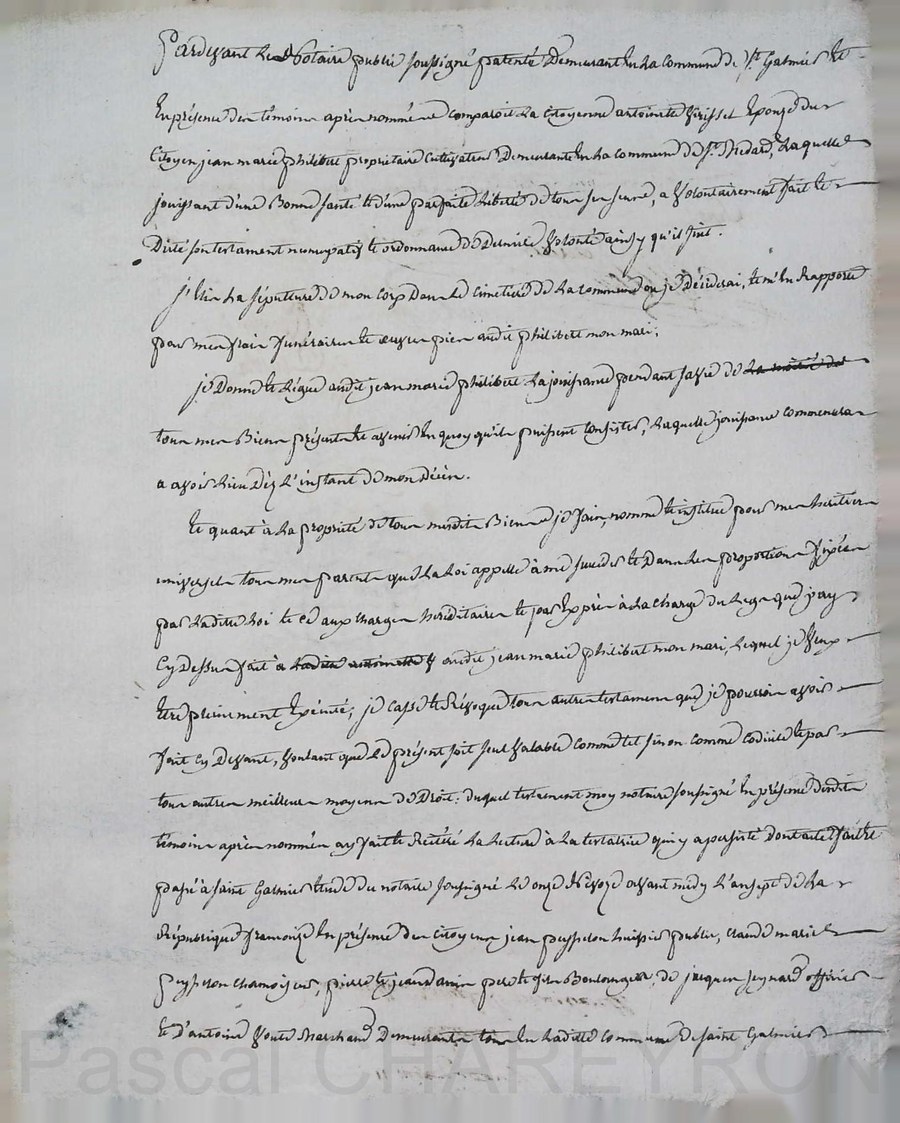 Pardevant Le Notaire public soussigné patenté Demeurant En La Commune de St Galmier Et
En présence des témoins après nommés comparoit La Citoyenne antoinette Epouse du
Citoyen jean marie philibert propriétaire Cultivateur Demeurante En La Commune de St Medard, Laquelle
jouissant d'une Bonne santé et d'une parfaite Liberté de tous ses sens, a Volontairement fait et
Dicté son testament nuncupatif et ordonnance de Derniere Volonté ainsy qu'il suit.
j'Elis La sépulture de mon corps Dans Le cimetière de La commune ou je Déciderai, et m'En Rapporte
pour mes frais funéraires et œuvres pies audit philibert mon mari;
je Donne et Lègue audit jean marie philibert La jouissance pendant sa vie de La moitié de
tous mes Biens présents et avenir En quoy qu'ils puissent Consister, Laquelle jouissance commencera
a avoir Lieu Dèz L'instant de mon Décès.
Et quant à La propriété de tous mesdits Biens je fais, nomme et institue pour mes héritiers
universels tous mes parents que La Loi appelle à me succéder et Dans Les proportions fixées
par Ladite Loi et ce aux charges héréditaires et par Exprès à La Charge du Legs que j'ay
Cy Dessus fait à Ladite antoinette audit jean marie philibert mon mari, Lequel je Veux
Etre pleinement Exécuté; je Casse et Révoque tous autres testaments que je pourrois avoir
fait Cy Devant, Voulant que Le présent soit seul Valable comme tel sinon comme codicile et par
tous autres meilleurs moyens de Droit: duquel testament moy notaire soussigné En présence desdits
témoins après nommés ay fait et Réitéré La Lecture à La testatrice qui y a persisté Dont acte fait et
passé à saint Galmier Etude du notaire soussigné Le onze Nivose avant midy L'an sept de La
République françoise En présence des Citoyens jean peysselon huissier public, claude marie
peysselon chamoiseur, pierre et jean pere et fils Boulangers, de jacques Leynard officier
et D'antoine marchand Demeurants tous En Ladite Commune de saint Galmier
Pascal CHAREYRON